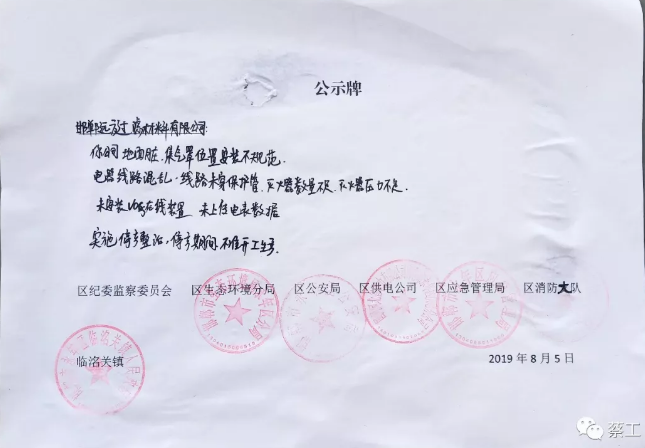 公示牌
邯郸远方过滤材料有限公司:
你公司地面脏,集气罩位置安装不规范.
电器线路混乱,线路未穿保护管,灭火器数量不足,灭火器压力不足.
未安装VOCs在线装置 未上传电表数据
实施停产整治,停产期间,不准开工生产.
区纪委监察委员会 区生态环境分局 区公安局 区供电公司 区应急管理局 区消防大队
临洺关镇
2019年8月5日
蔡工